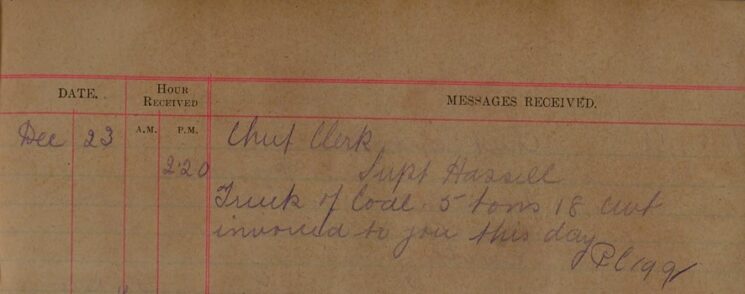 DATE.
HOUR RECEIVED
MESSAGES RECEIVED.
A.M. P.M.
Dec 23
2.20
Chief Clerk
Supt Hassell
Truck of Coal. 5 tons 18 cwt
invoiced to you this day